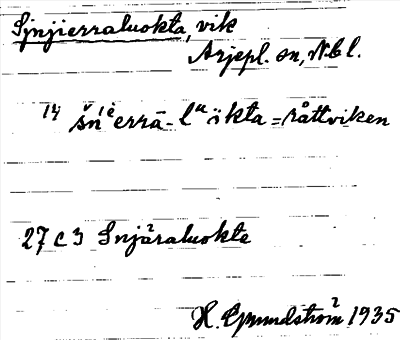 Sjnjierraluokta, vik
Arjepl. sn, N.b l.
14 šn'ėrrā-lᵘökta = råttviken
27 C 3 Snjäraluokta
H. Grundström 1935